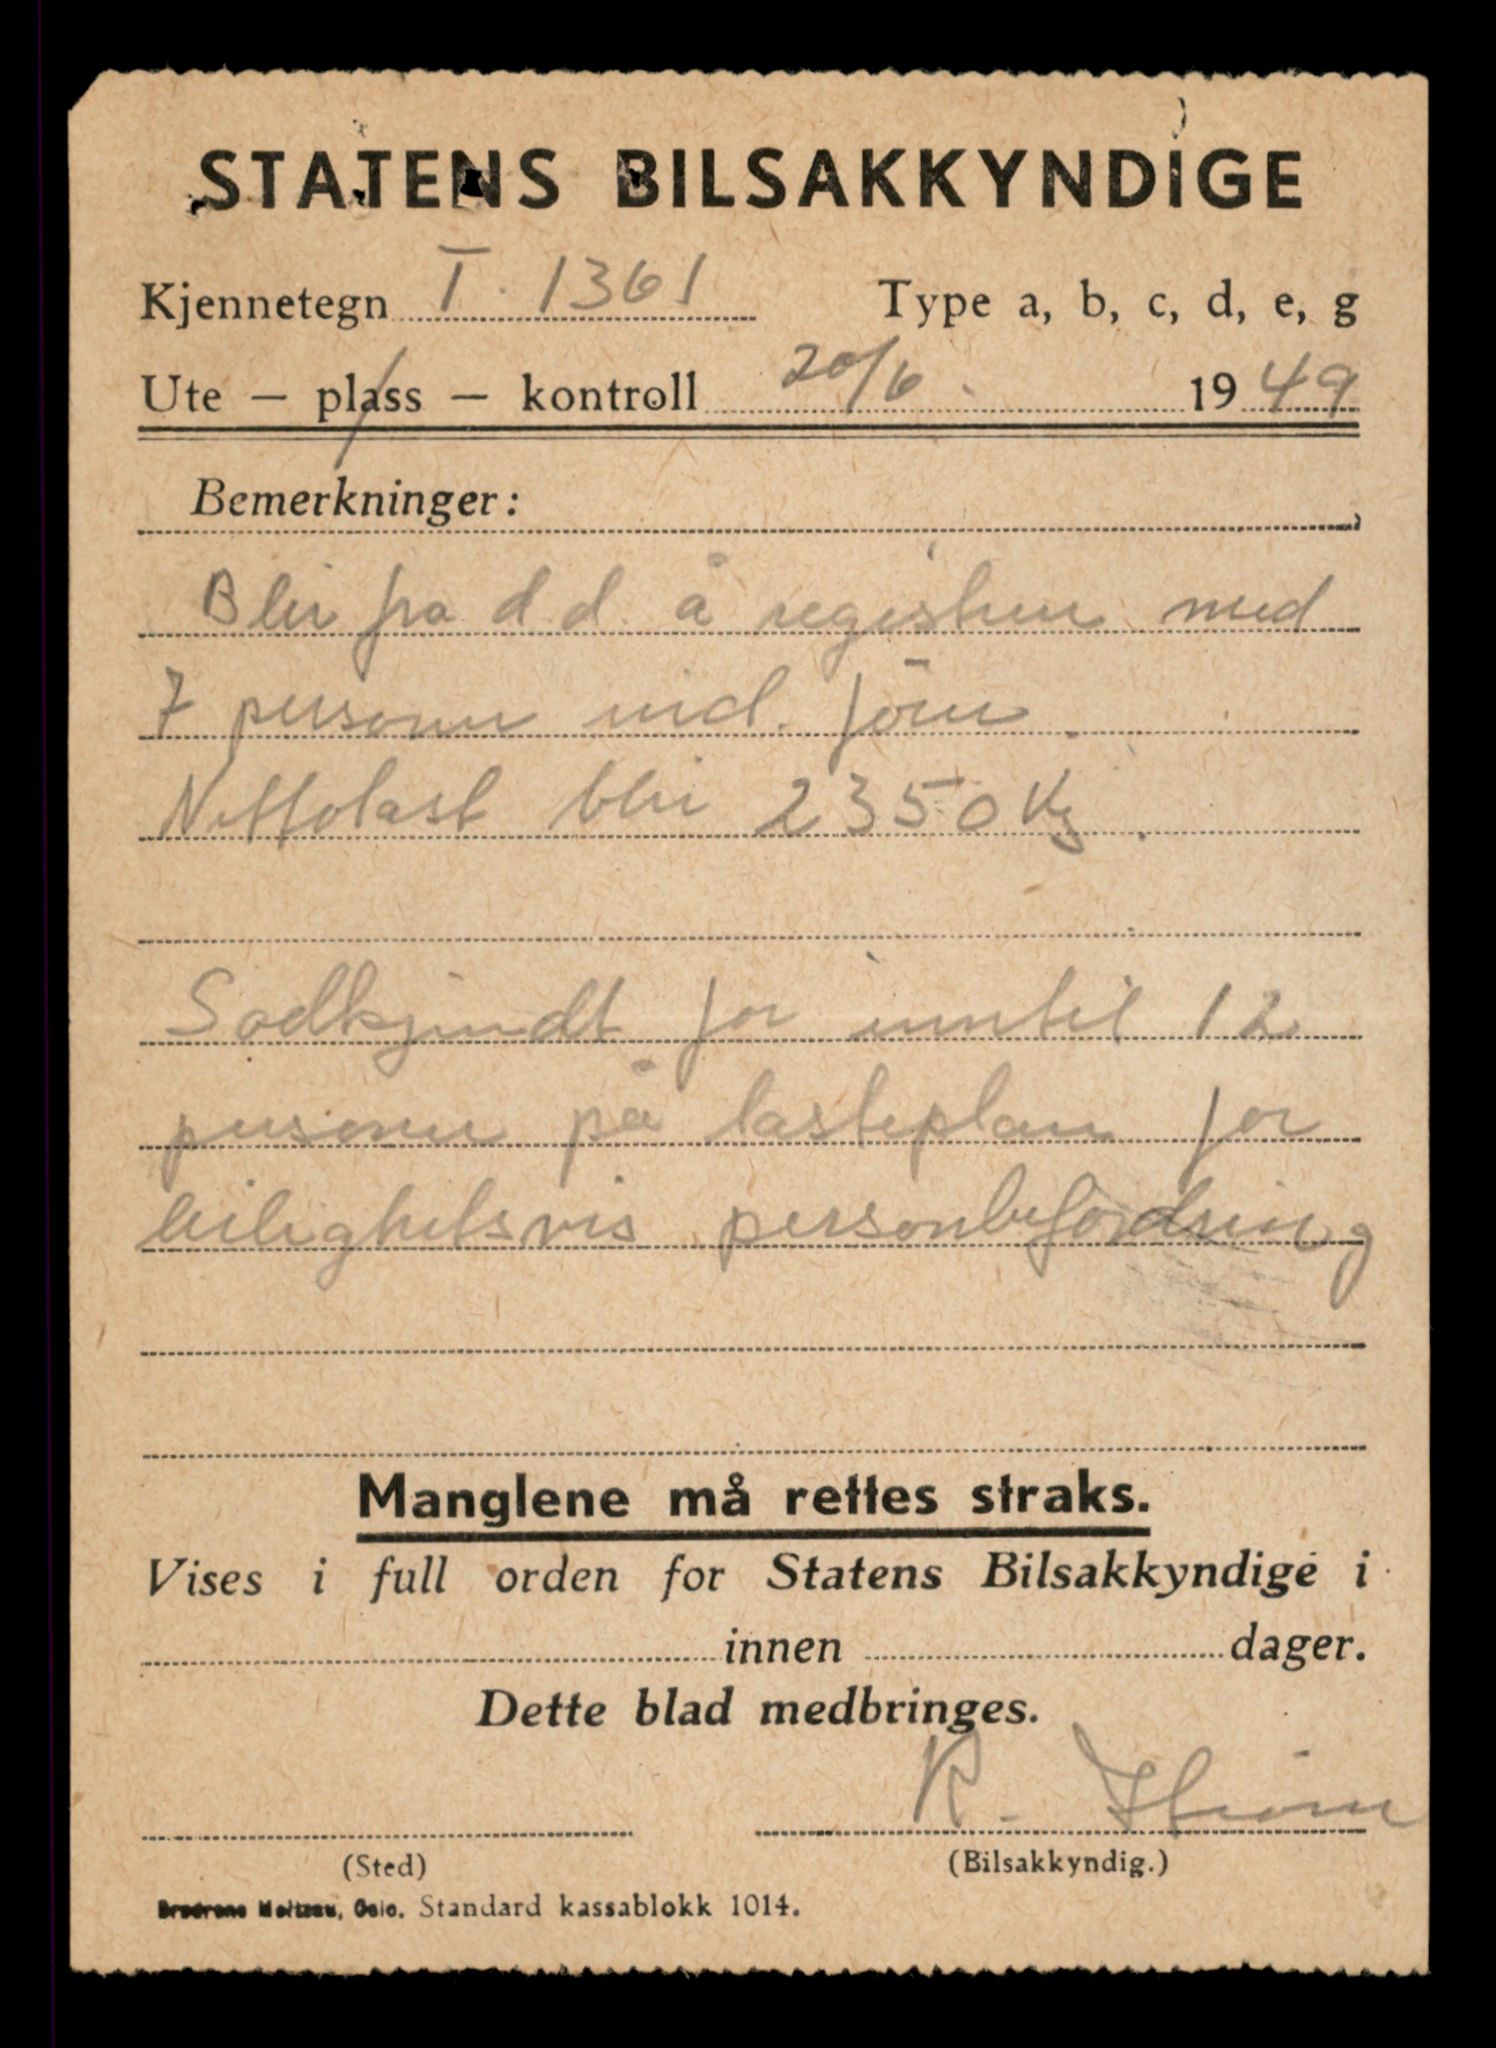 STATENS BILSAKKYNDIGE
Kjennetegn T. 1361 Type a, b, c, d, e, g
Ute — plass — kontroll 20/6. 1949
Bemerkninger:
Blir fra d.d. å registrere med
7 personer incl. fører.
Nettolast blir 2350 Kg.
Godkjendt for inntil 12
personer på lasteplan for
leilighetsvis personbefordring
Manglene må rettes straks.
Vises i full orden for Statens Bilsakkyndige i
innen dager.
Dette blad medbringes.
R.
(Sted) (Bilsakkyndig.)
Oslo. Standard kassablokk 1014.